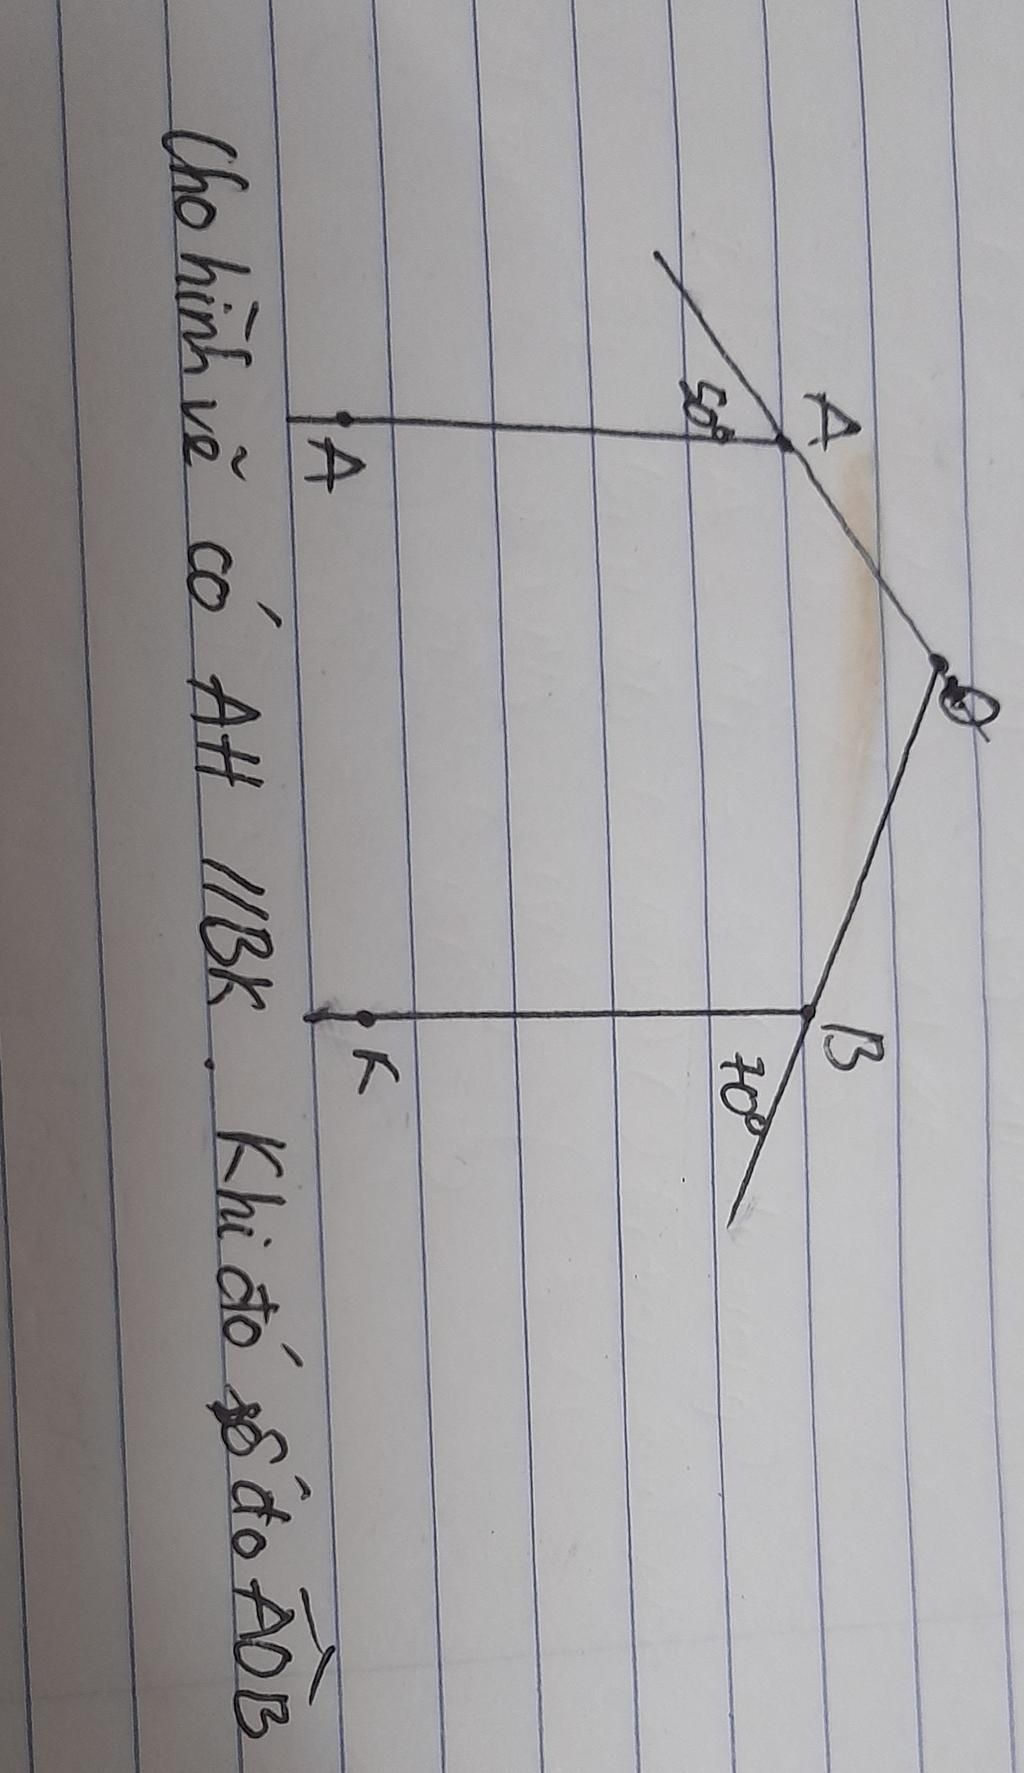 O
A
B
50°
70°
A
K
Cho hình vẽ có AH // BK. Khi đó số đo AÔB